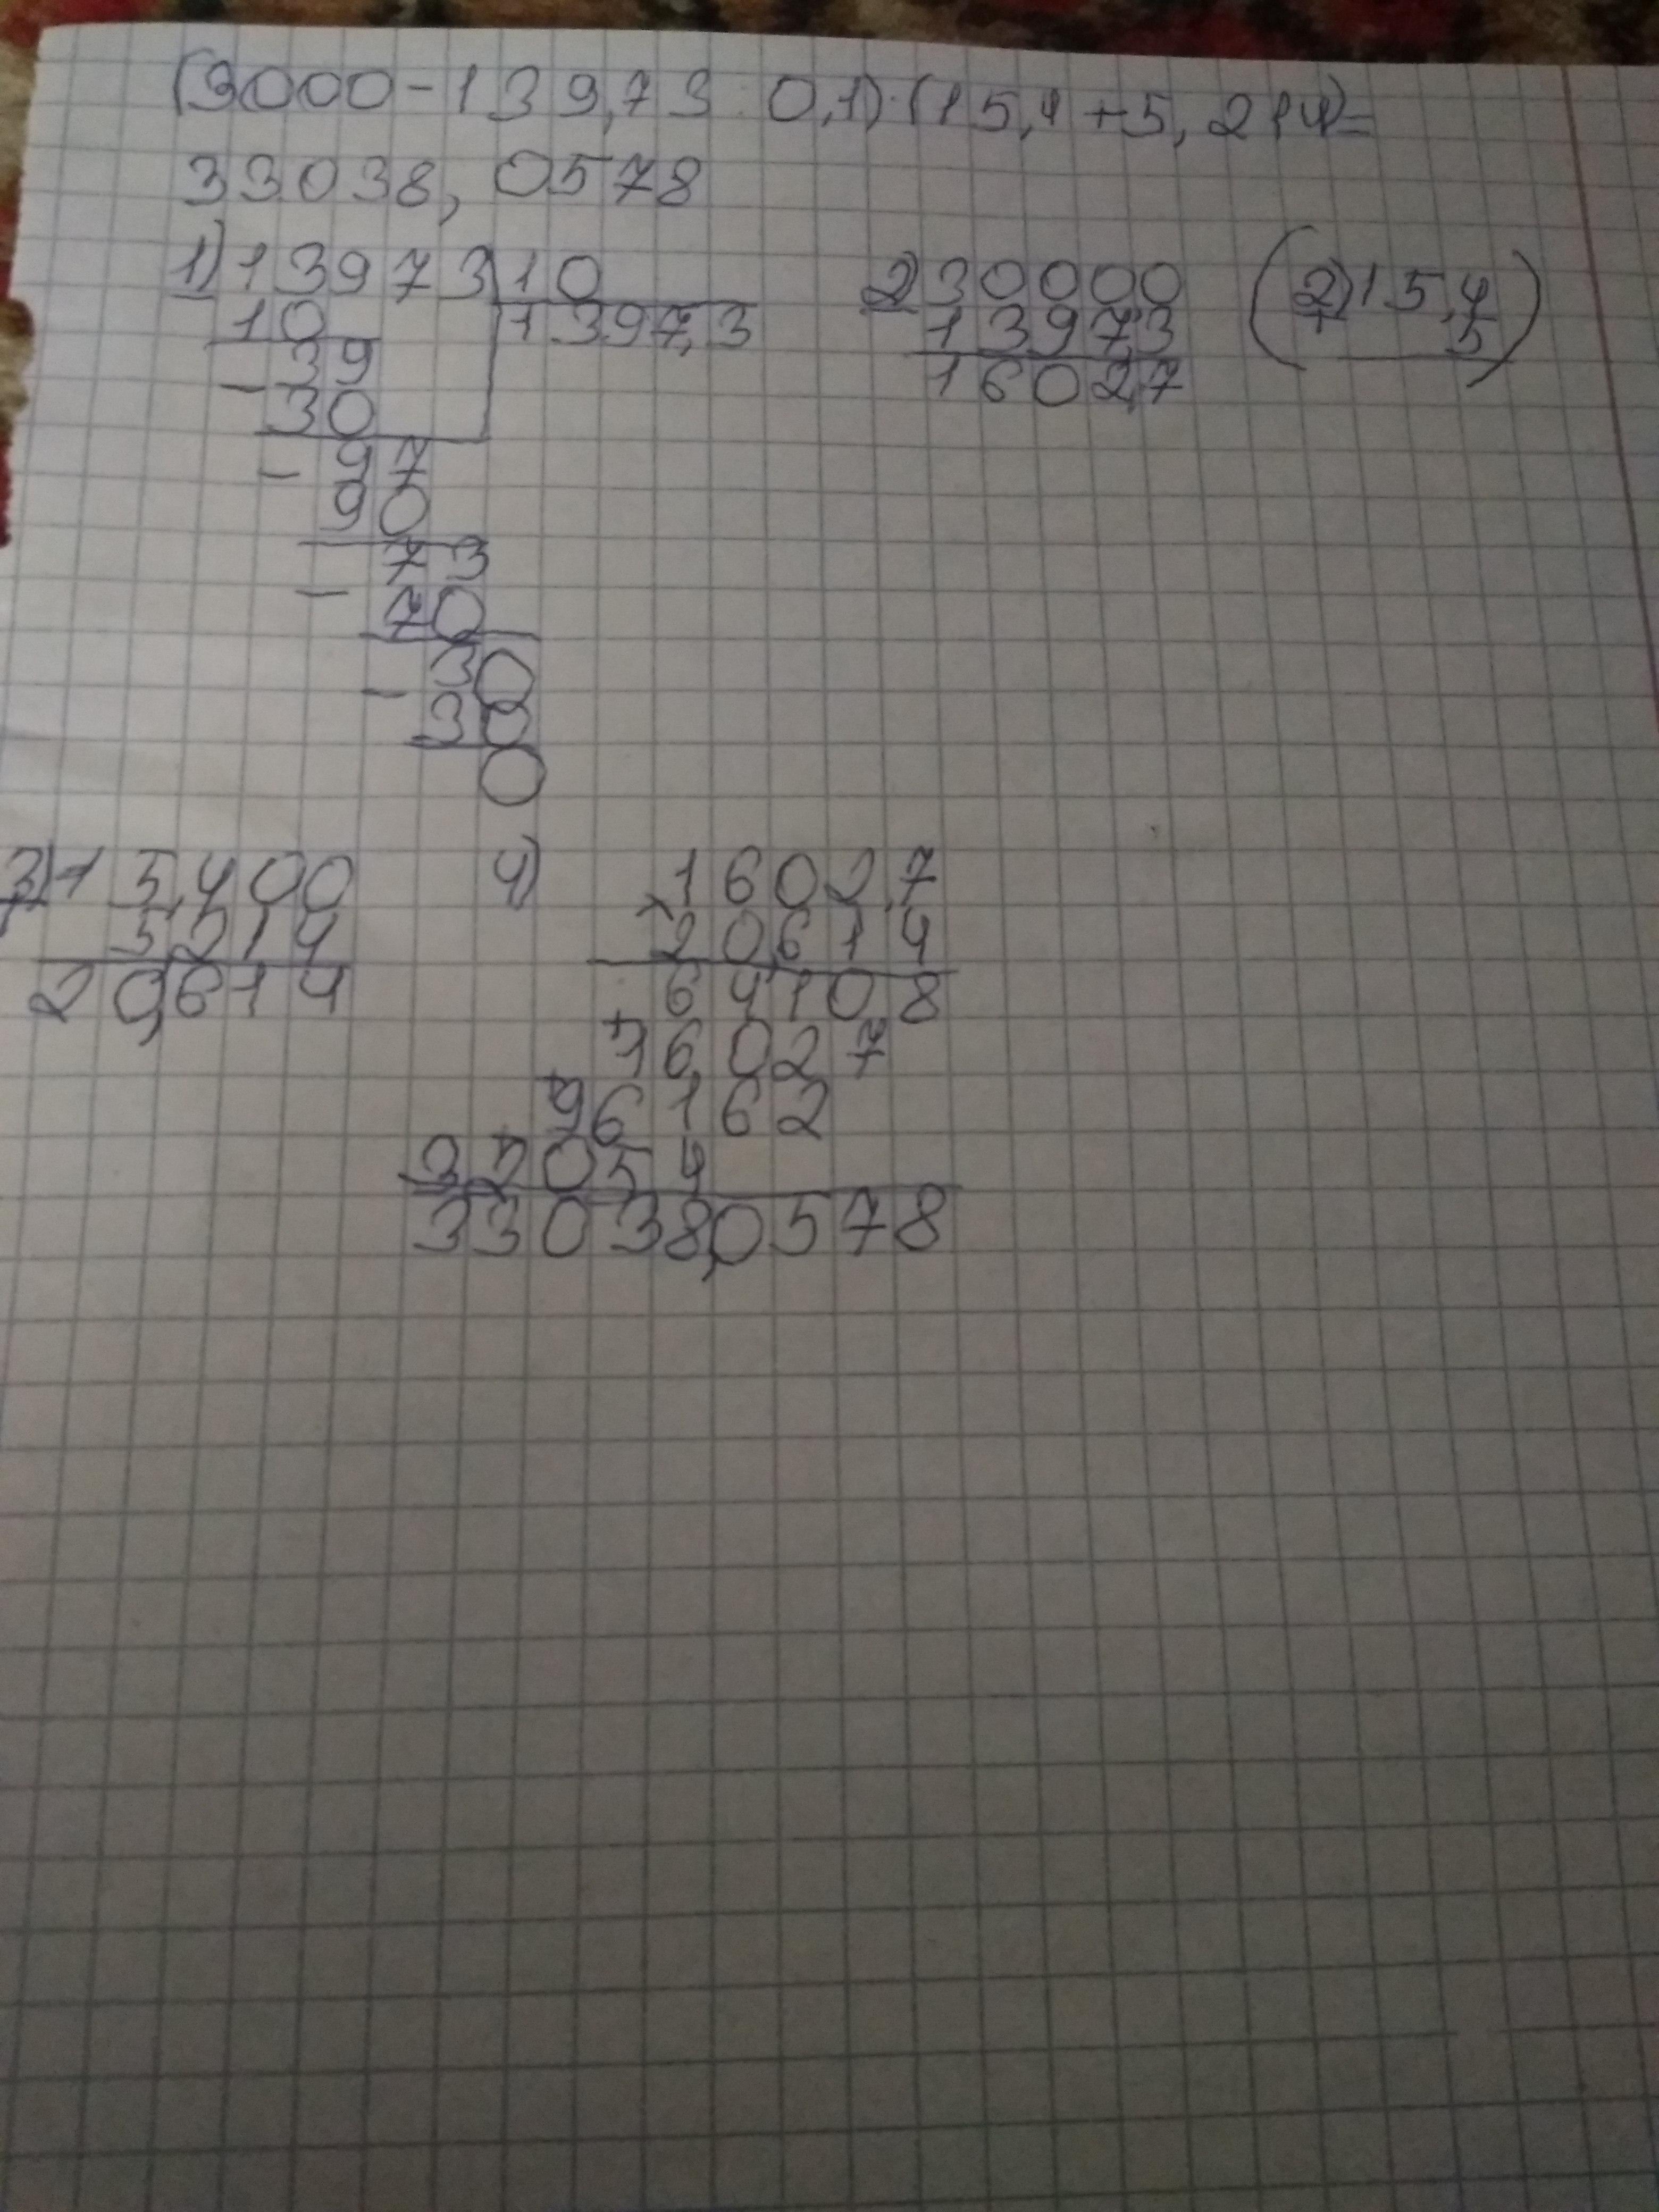 (3000-139,73:0,1)·(15,4+5,214)=
33038,0578
1)13973|10
10 1397,3
39
-30
-97
90
73
-70
30
-30
0
2)30000
1397,3
1602,7
(2)15,4
+5)
3)15,400
+5,214
20,614
4)
1602,7
×20,614
64108
+16027
+96162
32054
33038,0578